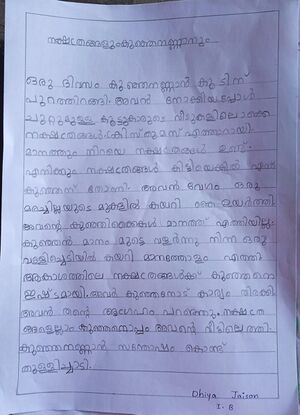 നക്ഷത്രങ്ങളുംകുഞ്ഞനണ്ണാനും...
ഒരു ദിവസം കുഞ്ഞനണ്ണാൻ കൂടിന്
പുറത്തിറങ്ങി. അവൻ നോക്കിയപ്പോൾ
ചുറ്റുമുള്ള കൂട്ടുകാരുടെ വീടുകളിലൊക്കെ
നക്ഷത്രങ്ങൾ. ക്രിസ്തുമസ് എത്താറായി.
മാനത്തും നിറയെ നക്ഷത്രങ്ങൾ ഉണ്ട്.
എനിക്കും നക്ഷത്രങ്ങൾ കിട്ടിയെങ്കിൽ എന്ന്
കുഞ്ഞന് തോന്നി. അവൻ വേഗം ഒരു
മരച്ചില്ലയുടെ മുകളിൽ കയറി കൈ ഉയർത്തി
അവന്റെ കുഞ്ഞികൈകൾ മാനത്ത് എത്തിയില്ല.
കുഞ്ഞൻ മാനം മുട്ടെ വളർന്നു നിന്ന ഒരു
വള്ളിച്ചെടിയിൽ കയറി മാനത്തോളം എത്തി
ആകാശത്തിലെ നക്ഷത്രങ്ങൾക്ക് കുഞ്ഞനെ
ഇഷ്ടമായി. അവർ കുഞ്ഞനോട് കാര്യം തിരക്കി
അവൻ തന്റെ ആഗ്രഹം പറഞ്ഞു. നക്ഷത്ര
ങ്ങളെല്ലാം കുഞ്ഞനൊപ്പം അവന്റെ വീട്ടിലെത്തി.
കുഞ്ഞനണ്ണാൻ സന്തോഷം കൊണ്ട്
തുള്ളിച്ചാടി.
Dhiya Jaison
I. B